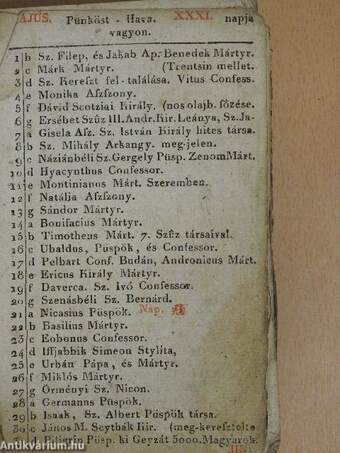 AJUS. Pünköst - Hava. XXXI. napja
vagyon.
1 b Sz. Filep, és Jakab Ap. Benedek Mártyr.
2 c Márk Mártyr. (Trentsin mellet.
3 d Sz. Kereszt fel-találása. Vitus Confess.
4 e Monika Afzfzony.
5 f Dávid Scotziai Király. (nos olajb. főzése.
6 g Ersébet Szűz III. Andr. Kir. Leánya, Sz. Ja-
7 a Gisela Afz. Sz. István Király hites társa.
8 b Sz. Mihály Arkangy. meg-jelen.
9 c Náziánbéli Sz. Gergely Püsp. Zenom Márt.
10 d Hyacynthus Confessor.
11 e Montinianus Márt. Szeremben.
12 f Natália Afzfzony.
13 g Sándor Mártyr.
14 a Bonifacius Mártyr.
15 b Timotheus Márt. 7. Szűz társaival.
16 c Ubaldus, Püspök, és Confessor.
17 d Pelbart Conf. Budán, Andronicus Márt.
18 e Ericus Király Mártyr.
19 f Daverca. Sz. Ivó Confessor.
20 g Szenásbéli Sz. Bernárd.
21 a Nicasius Püspök. Nap.
22 b Basilius Mártyr.
23 c Eobonus Confessor.
24 d Iffjabbik Simeon Stylita,
25 e Urbán Pápa, és Mártyr.
26 f Miklós Mártyr.
27 g Örményi Sz. Nicon.
28 a Germanus Püspök.
29 b Isaak, Sz. Albert Püspök társa.
30 c János M. Scythák Kir. (meg-keresztelte
d Piligrin Püsp. ki Geyzát 5000. Magyarok.
www.antikvarium.hu